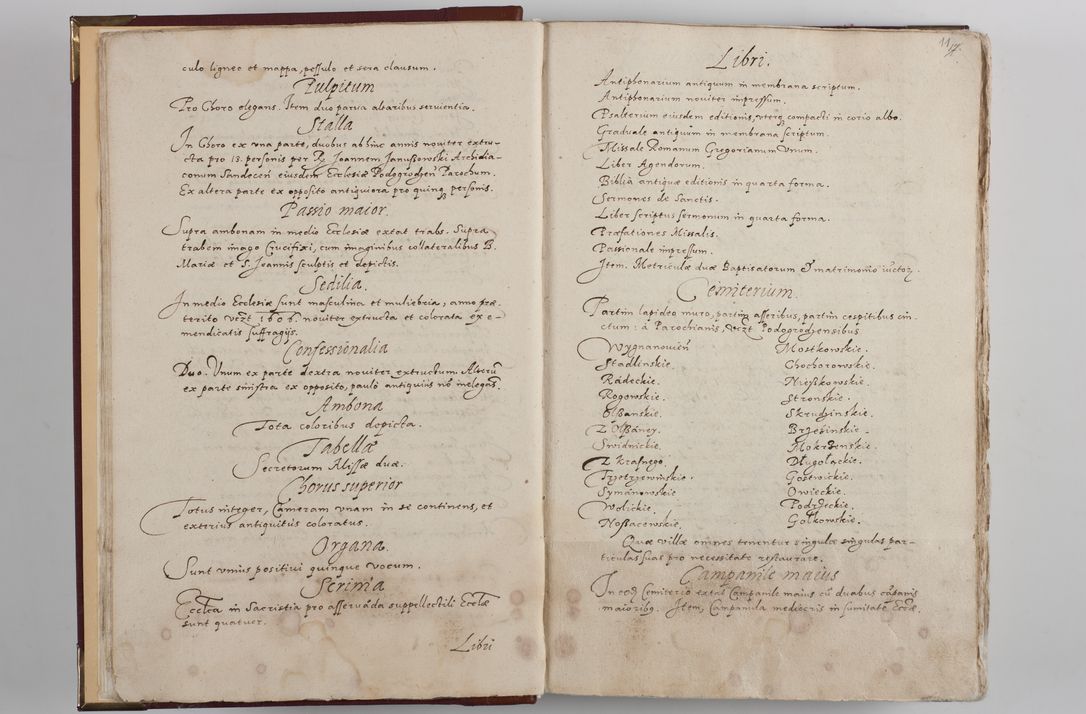 culo ligneo et mappa, pessulo et sera clausum.
Pulpitum
Pro Choro elegans. Item duo parva altaribus servientia.
Stalla
In Choro ex vna parte, duobus ab hinc annis noviter extru-
cta pro 13. personis per R. Joannem Januszowski Archidia-
conum Sandeceń eiusdem Ecclesiæ Podogrodzeń Parochum.
Ex altera parte ex opposito antiquiora pro quinq personis.
Passio maior.
Supra ambonam in medio Ecclesiæ extat trabs. Supra
trabem imago Crucifixi, cum imaginibus collateralibus B.
Mariæ et S. Joannis sculptis et depictis.
Sedilia.
In medio Ecclesiæ sunt masculina et muliebria, anno præ-
terito vezt 1606. noviter extructa et colorata ex e-
mendicatis suffragijs.
Confessionalia
Duo. Unum ex parte dextra noviter extructum. Alterū
ex parte sinistra ex opposito, paulò antiquiùs nō inelegans.
Ambona
Tota coloribus depicta.
Tabellæ
Secretorum Missæ duæ.
Chorus superior
Totus integer, Cameram vnam in se continens, et
exterius antiquitùs coloratus.
Organa.
Sunt vnius positivi quinque vocum.
Scrinia
Eccl̄ca in Sacristia pro asservāda suppellectili Eccl̄æ
sunt quatuer.
Libri
11
Libri.
Antiphonarium antiquum in membrana scriptum.
Antiphonarium noviter impressum.
Psalterium eiusdem editionis, vterq compacti in corio albo.
Graduale antiquum in membrana scriptum.
Missale Romanum Gregorianum Vnum.
Liber Agendorum.
Biblia antiquæ editionis in quarta forma.
Sermones de Sanctis.
Liber scriptus sermonum in quarta forma.
Præfationes Missalis.
Passionale impressum.
Item. Metriculæ duæ Baptisatorum & matrimonio iūctoꝝ.
Cemiterium.
Partim lapideo muro, partim asseribus, partim cespitibus cin-
ctum: à Parochianis, vezt Podogrodzensibus
Wygnanovień
Stadlinskie.
Radeckie.
Rogowskie.
Olszanskie.
Z Olszaney.
Swidnickie.
Z Krasnego.
Trzetrzewinskie.
Symanowskie
Wolickie.
Noszacewskie.
Mostkowskie.
Chochorowskie.
Nieszkowskie.
Stronskie.
Skrudzinskie.
Brzezinskie.
Mokrzenskie.
Długołąckie.
Gostwickie.
Owieckie.
Podrzeckie.
Gołkowskie.
Quæ villæ omnes tenentur singulæ singulas par-
ticulas suas pro necessitate restaurare.
Campanile maius
In eod Cemiterio extat Campanile maius cū duabus cāpanis
maioribq. Item, Campanula mediocris in sumitate Eccl̄æ.